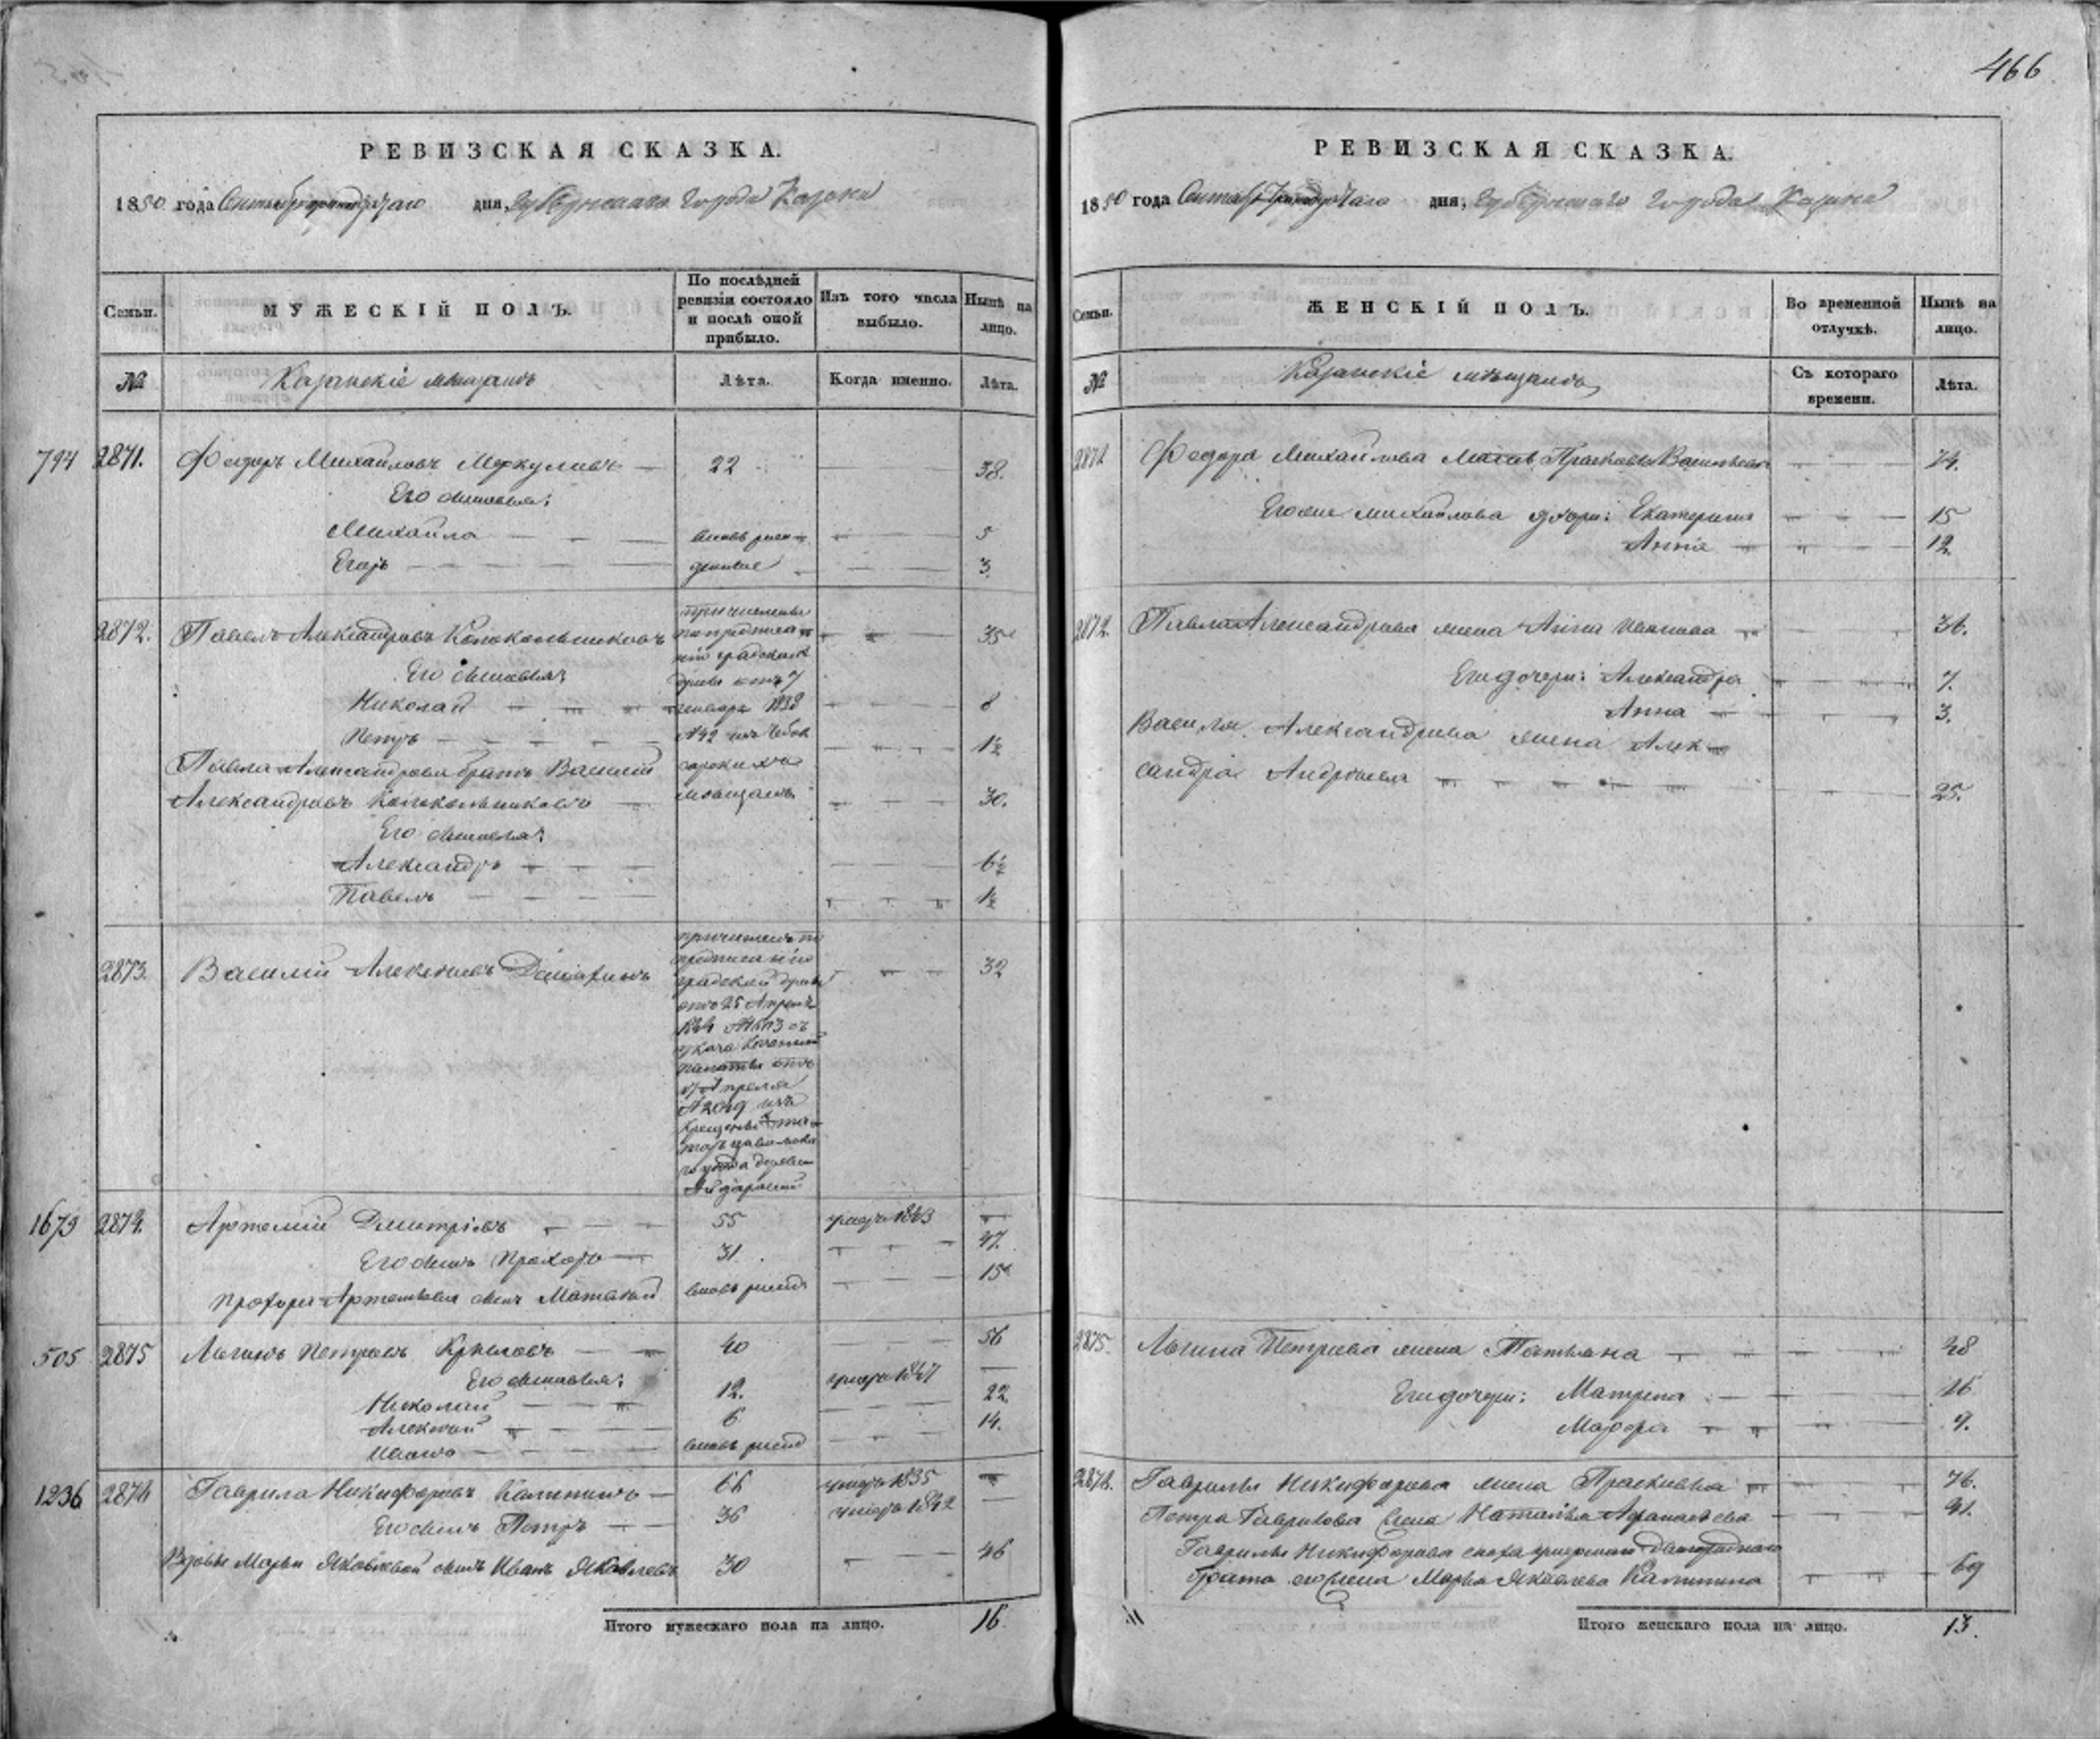 466
РЕВИЗСКАЯ СКАЗКА.
1850 года Сентября дня, Губернскаго Города Казани
Семьи.
МУЖЕСКІЙ ПОЛЪ.
По послѣдней
ревизіи состояло
и послѣ оной
прибыло.
Изъ того числа
выбыло.
Нынѣ на
лицо.
№
Казанскіе мѣщанъ
Лѣта.
Когда именно.
Лѣта.
794 2871. Федоръ Михайловъ Меркуловъ 22 38.
Его сыновья:
Михайла вновь рож 5
Егоръ денные 3.
2872. Павелъ Александровъ Колокольниковъ 35
причислены
по предписа
нію градской
думы отъ 7
генваря 1838
№42 изъ Чебок
сарскихъ
мѣщанъ
Его сыновья:
Николай 8
Петръ 1½
Павла Александрова братъ Василій
Александровъ Колокольниковъ 30.
Его сыновья:
Александръ 6½
Павелъ 1½
2873. Василій Алексѣевъ 32
причисленъ по
предписанію
градской думы
отъ 25 Апреля
1844
указа Казенной
палаты отъ
Апреля
№2049 изъ
уѣзда деревни
1673 2874. Артемій Дмитріевъ 55 умеръ 1843
Его сынъ Прохоръ 31. 47.
Прохора Артемьева сынъ Матвей вновь рожд 15
505 2875 Логинъ Петровъ Крыловъ 40 56
Его сыновья:
Николай 12. умеръ 1847
Алексѣй 6 22.
Иванъ вновь рожд 14.
1236 2876 Гаврила Никифоровъ Калининъ 66 умеръ 1835
Его сынъ Петръ 36 умеръ 1842
Вдовы Марьи Яковлевой сынъ Иванъ Яковлевъ 30 46
Итого мужескаго пола на лицо. 16.
РЕВИЗСКАЯ СКАЗКА.
1850 года Сентября дня, Губернскаго Города Казани
Семьи.
ЖЕНСКІЙ ПОЛЪ.
Во временной
отлучкѣ.
Нынѣ на
лицо.
№
Казанскіе мѣщанъ
Съ котораго
времени.
Лѣта.
2871 Федора Михайлова Мать Прасковья Васильева 74.
Егоже Михайлова дочери: Екатерина 15
Анна 12.
2872. Павла Александрова жена Анна Иванова 36.
Его дочери: Александра 7.
Анна 3.
Василья Александрова жена Алек
сандра Андреева 25.
2875. Логина Петрова жена Татьяна 48
Его дочери: Матрена 16
Марфа 9.
2876. Гаврилы Никифорова жена Прасковья 76.
Петра Гаврилова жена Наталья Афанасьева 41.
Гаврилы Никифорова сноха
брата его жена Марья Яковлева Калинина 69
Итого женскаго пола на лицо. 13.